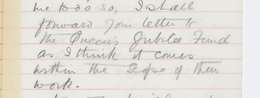 me to do so, I shall
forward your letter to
the Queen's Jubilee Fund
as I think it comes
within the scope of their
work.